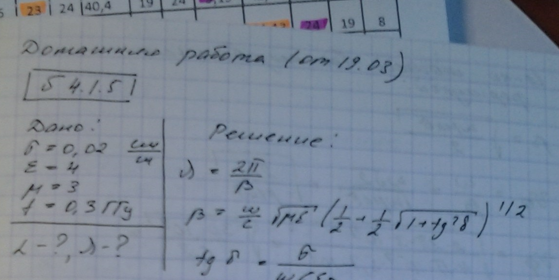 23 24 40,4 19 24
24 19 8
Домашняя работа (от 19.03)
§ 4.1.5
Дано:
σ = 0,02 см/м
ε = 4
μ = 3
f = 0,3 ГГц
α - ?, λ - ?
Решение:
λ = 2π/β
β = ω/c √με (1/2 + 1/2 √1+tg²δ)^1/2
tg δ = σ